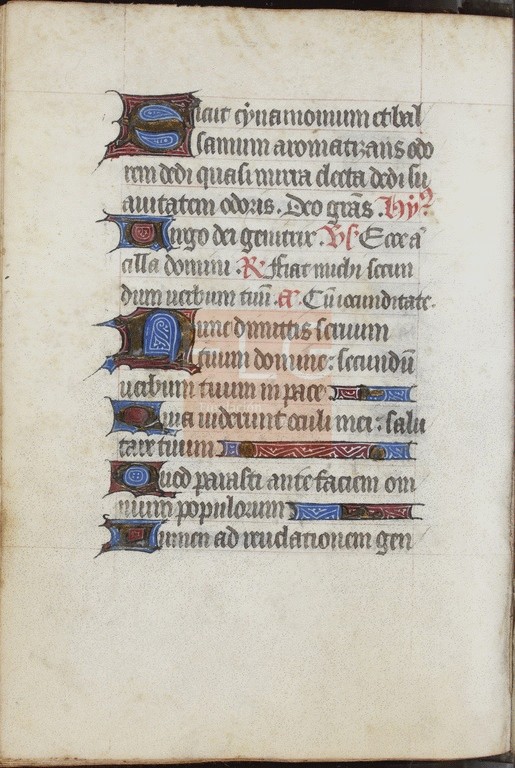 Sicut cynamomum et bal
samum aromatizans odo
rem dedi quasi mirra electa dedi su
auitatem odoris. Deo gras. Hy
Virgo dei genitrix. Vs. Ecce a
cilla domini. R. Fiat michi secun
dum uerbum tuu. A. Cu iocunditate.
Nunc dimittis seruum
tuum domine: secundu
uerbum tuum in pace
Quia uiderunt oculi mei: salu
tare tuum
Quod parasti ante faciem om
nium populorum
Lumen ad reuelationem gen